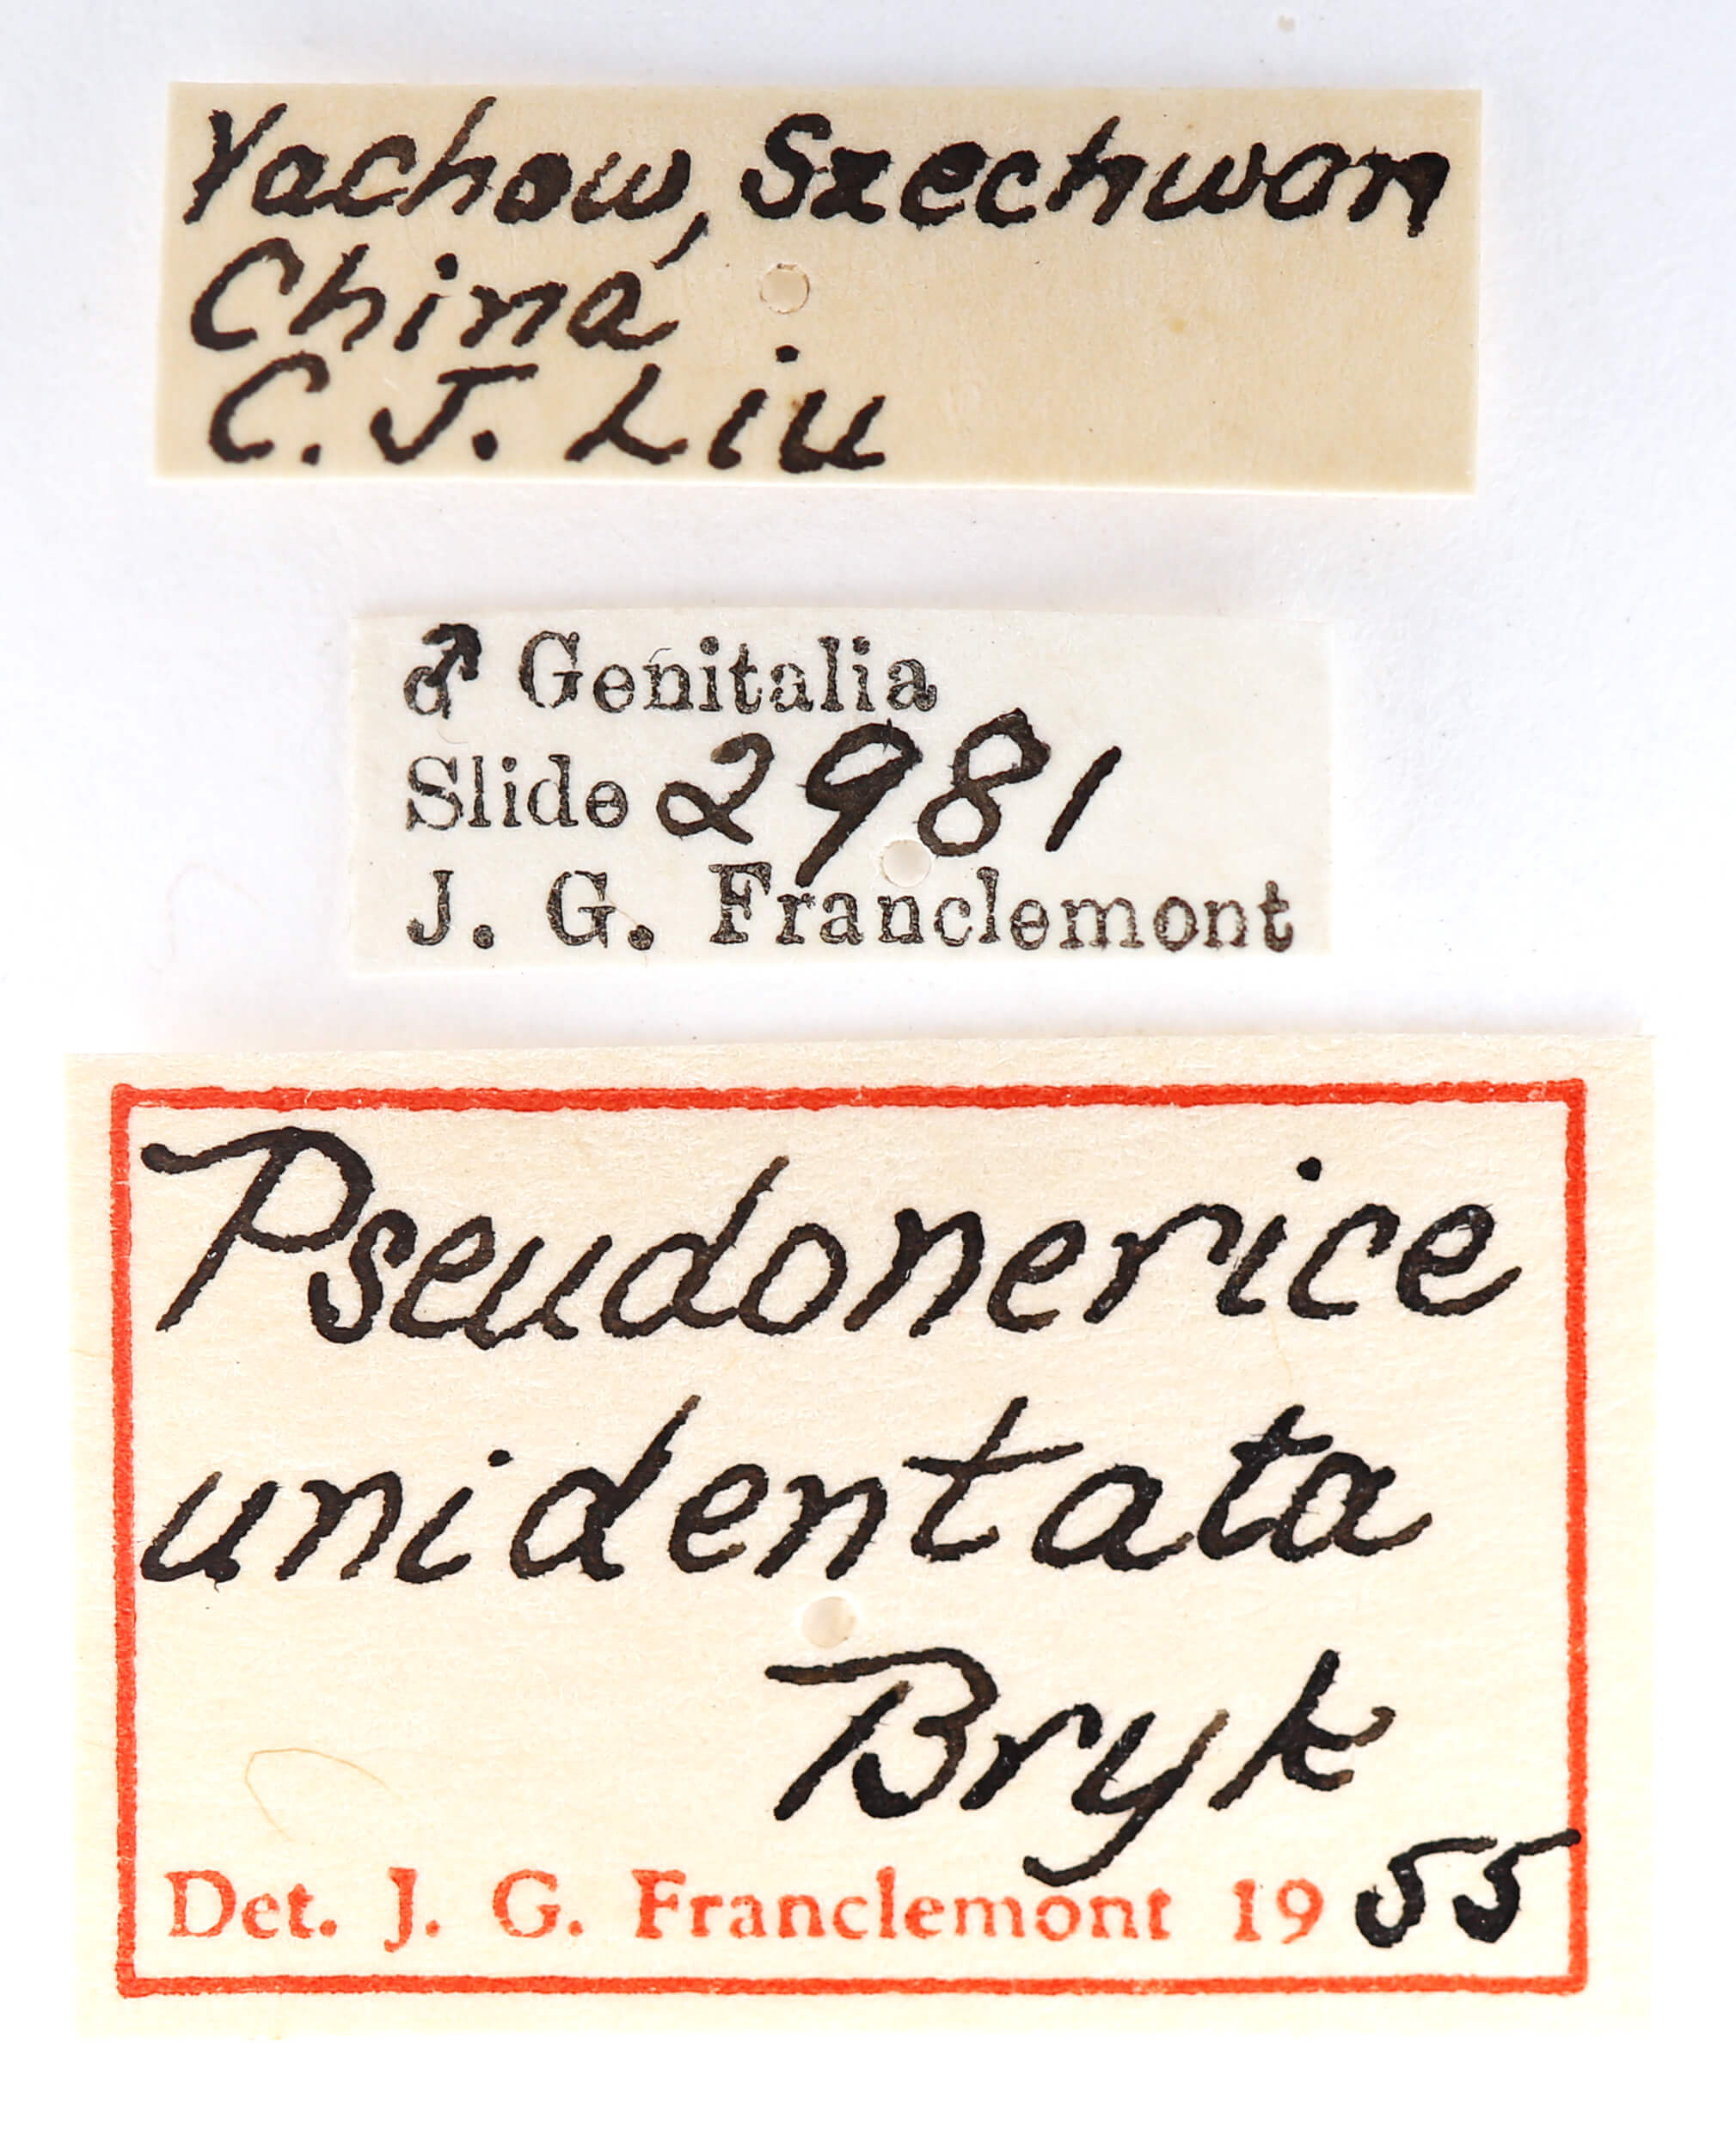 Yachow, Szechwan
China
C. J. Liu
♂ Genitalia
Slide 2981
J. G. Franclemont
Pseudonerice
unidentata
Bryk
Det. J. G. Franclemont 1955